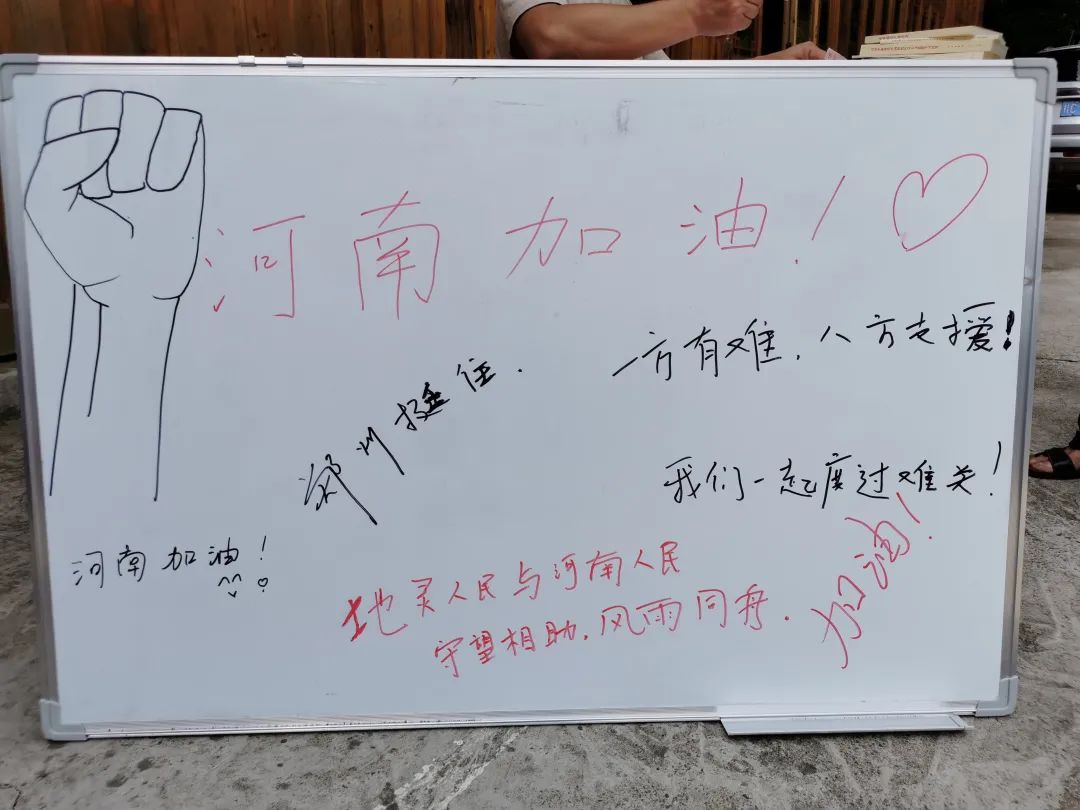 河南加油！
一方有难，八方支援！
郑州挺住．
我们一起度过难关！
河南加油！
地灵人民与河南人民
守望相助．风雨同舟．
加油！